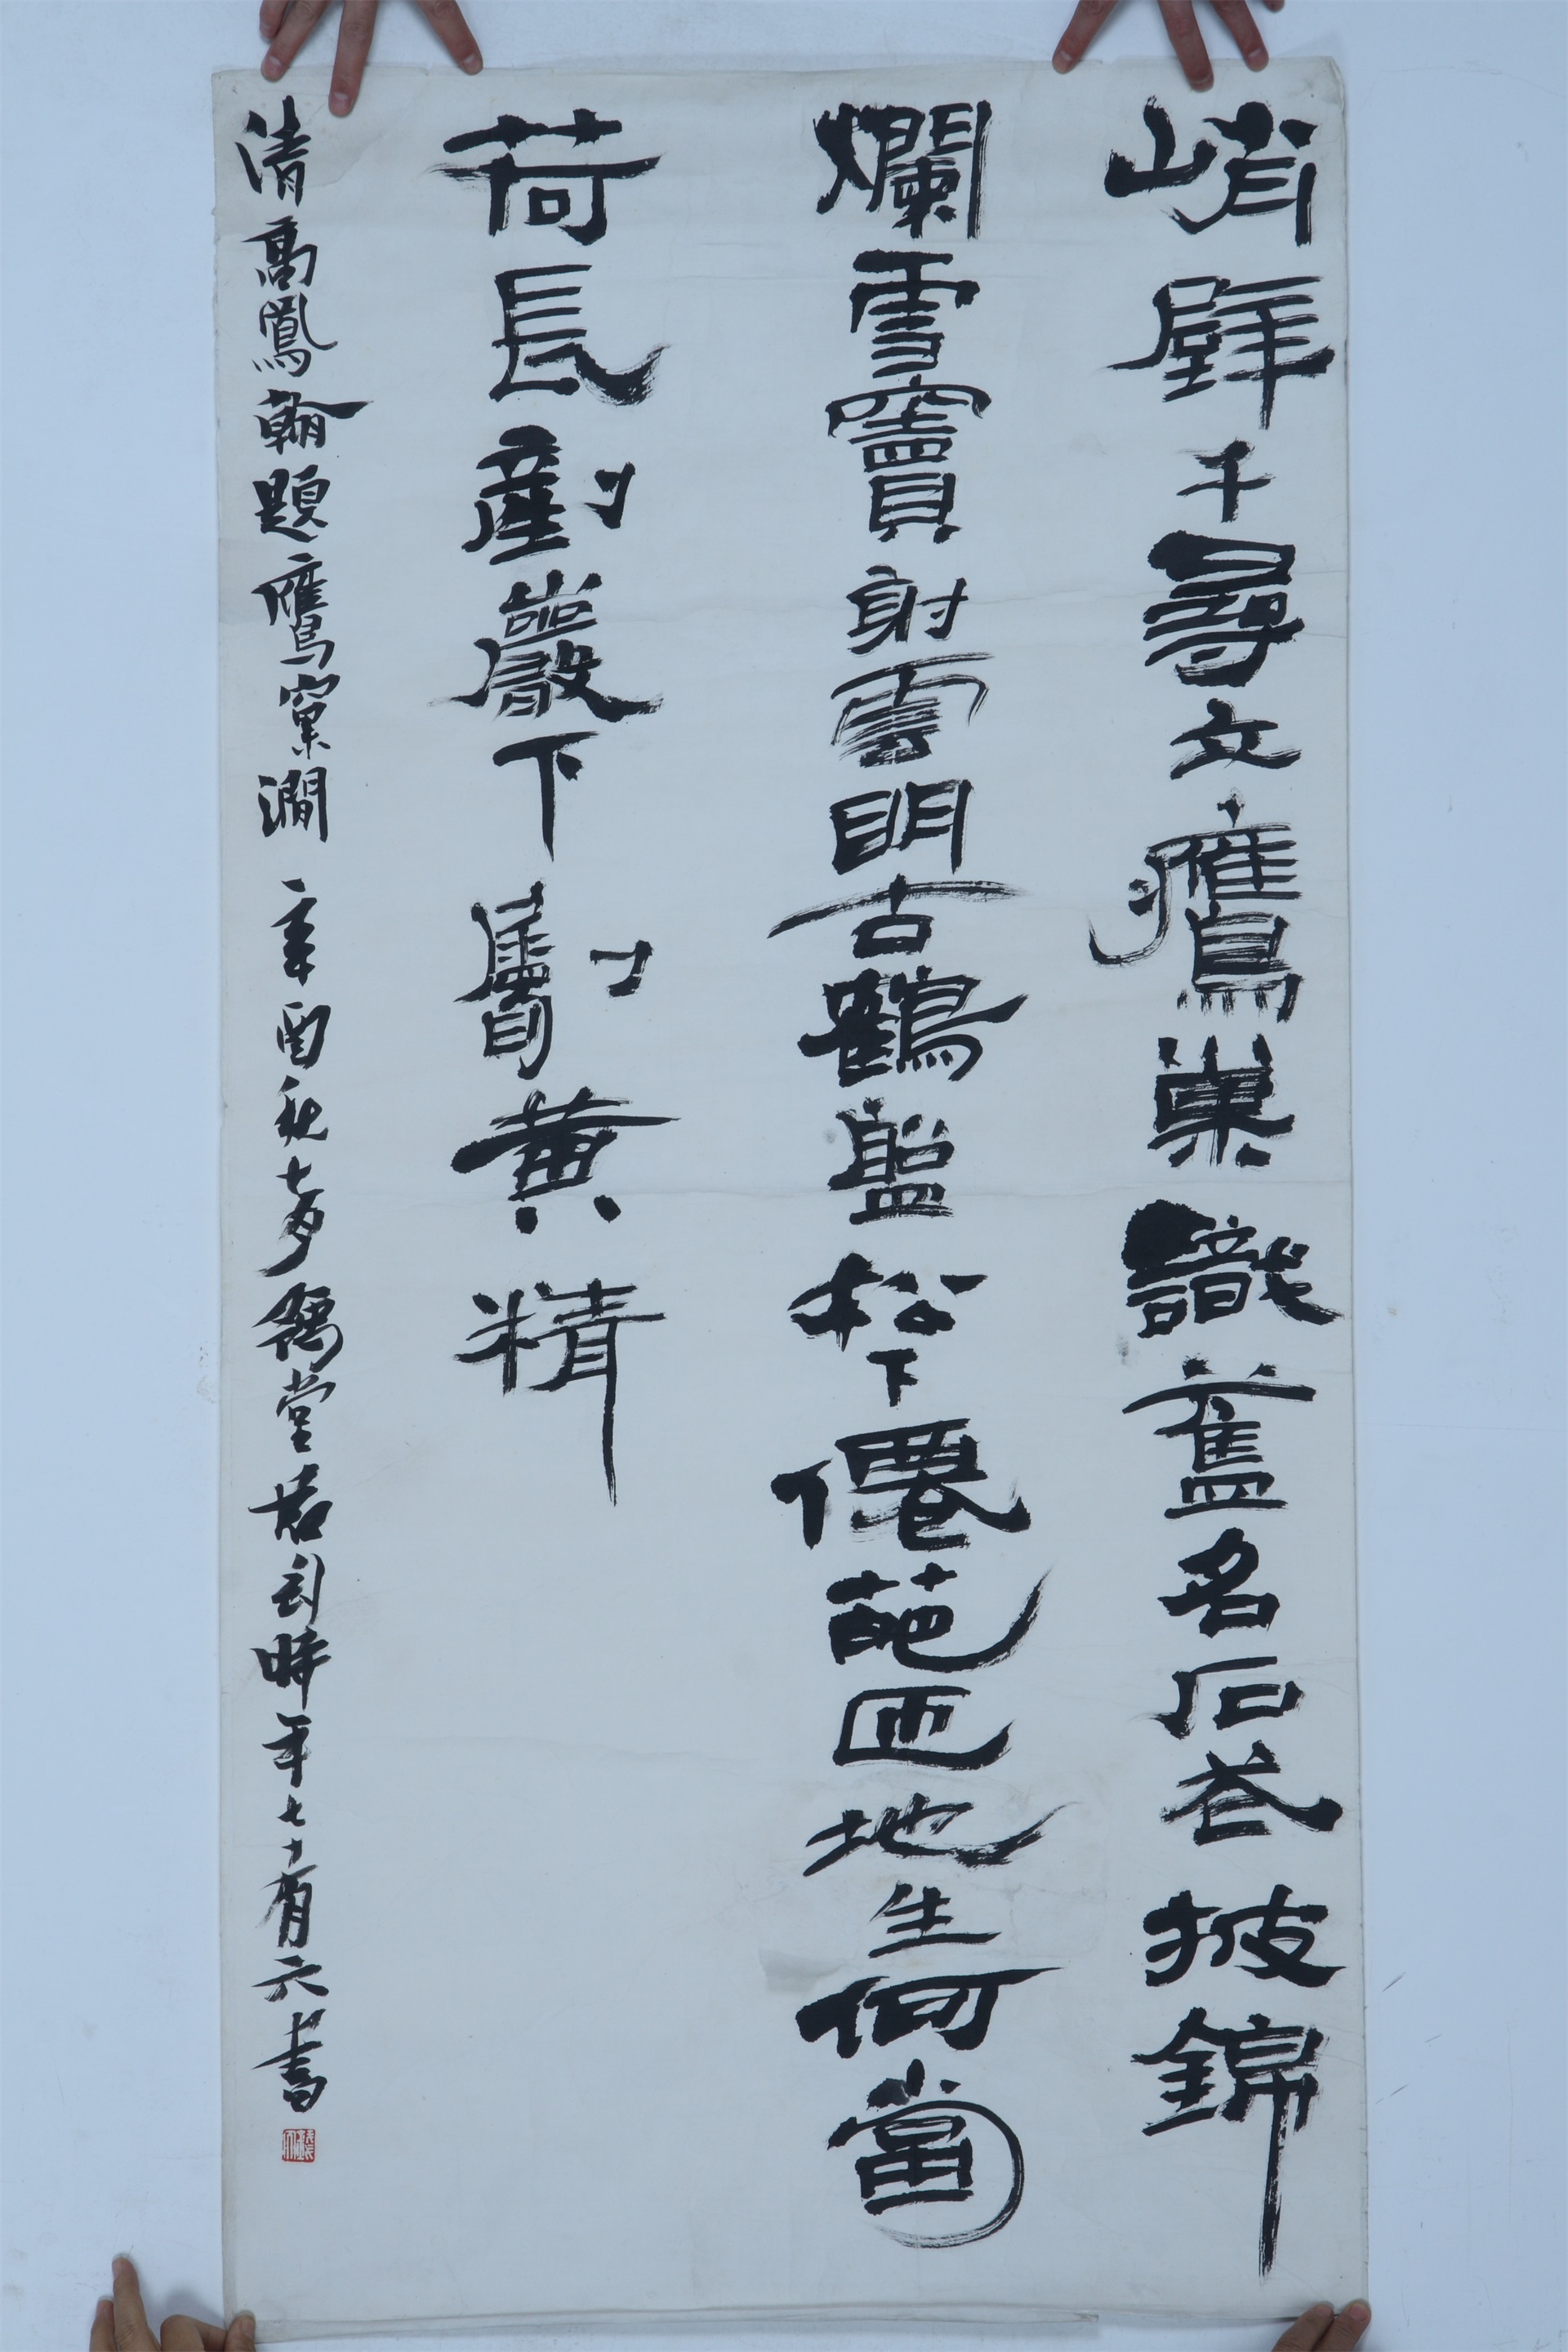 峭壁千尋立鷹巢識舊名石苔披錦
爛雪竇射雲明古鶴盤松下僊葩匝地生何當
荷長剷巖下劚黃精
清高鳳翰題鷹窠澗 辛酉秋七堂時年七十有六書